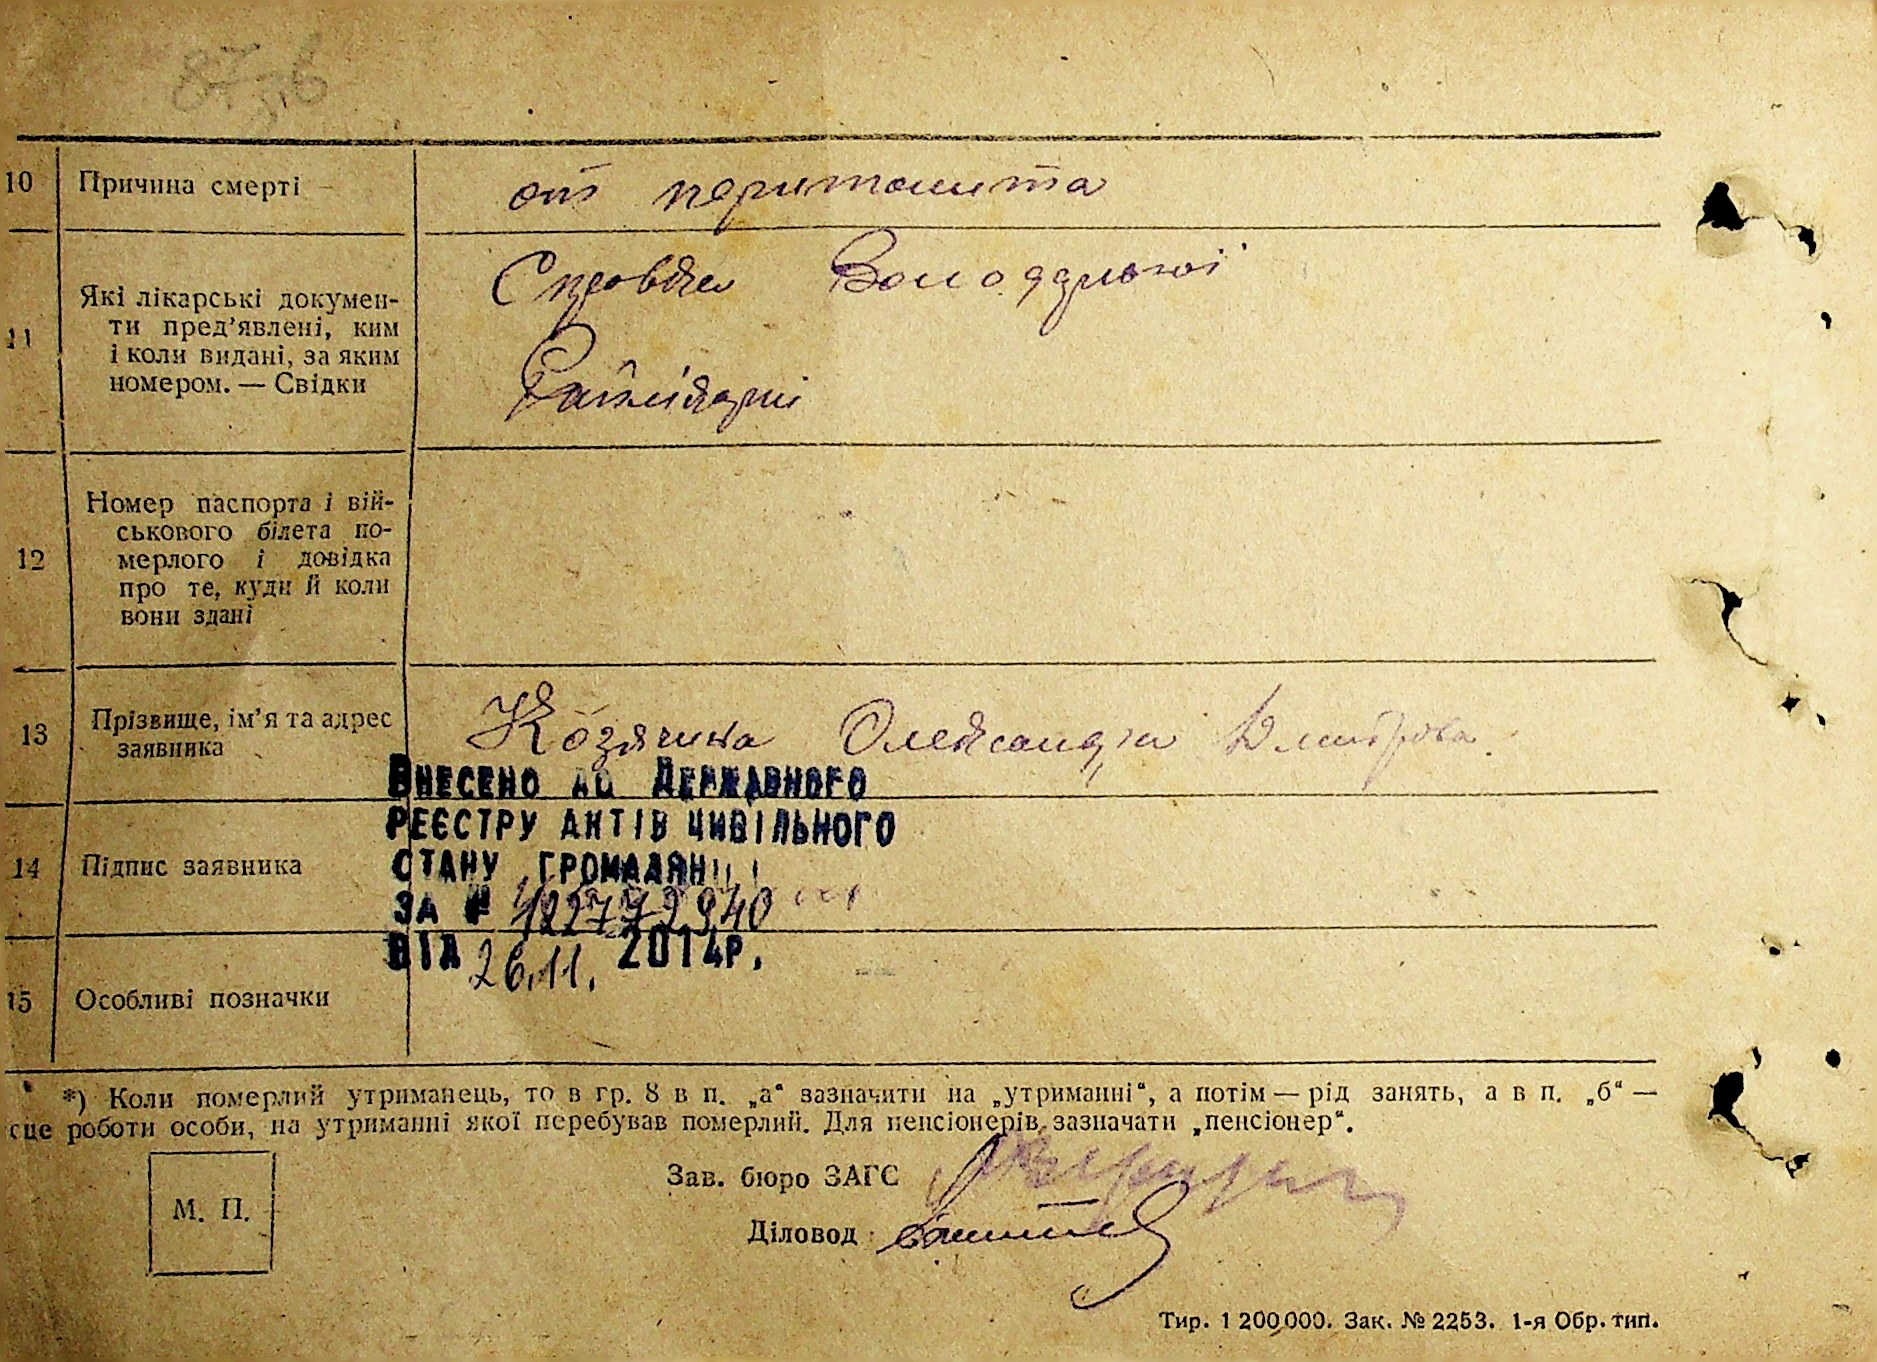 10 Причина смерті от перитонита
11 Які лікарські докумен-
ти пред'явлені, ким
і коли видані, за яким
номером. — Свідки
Справка
12 Номер паспорта і вій-
ськового білета по-
мерлого і довідка
про те, куди й коли
вони здані
13 Прізвище, ім'я та адрес
заявника
Козячина Олександра
ВНЕСЕНО ДО ДЕРЖАВНОГО
РЕЄСТРУ АКТІВ ЦИВІЛЬНОГО
СТАНУ ГРОМАДЯН
14 Підпис заявника
ЗА №
ВІД 26.11. 2014Р.
15 Особливі позначки
*) Коли померлий утриманець, то в гр. 8 в п. „а“ зазначити на „утриманні“, а потім — рід занять, а в п. „б“ —
сце роботи особи, на утриманні якої перебував померлий. Для пенсіонерів зазначати „пенсіонер“.
М. П.
Зав. бюро ЗАГС
Діловод
Тир. 1 200 000. Зак. № 2253. 1-я Обр. тип.